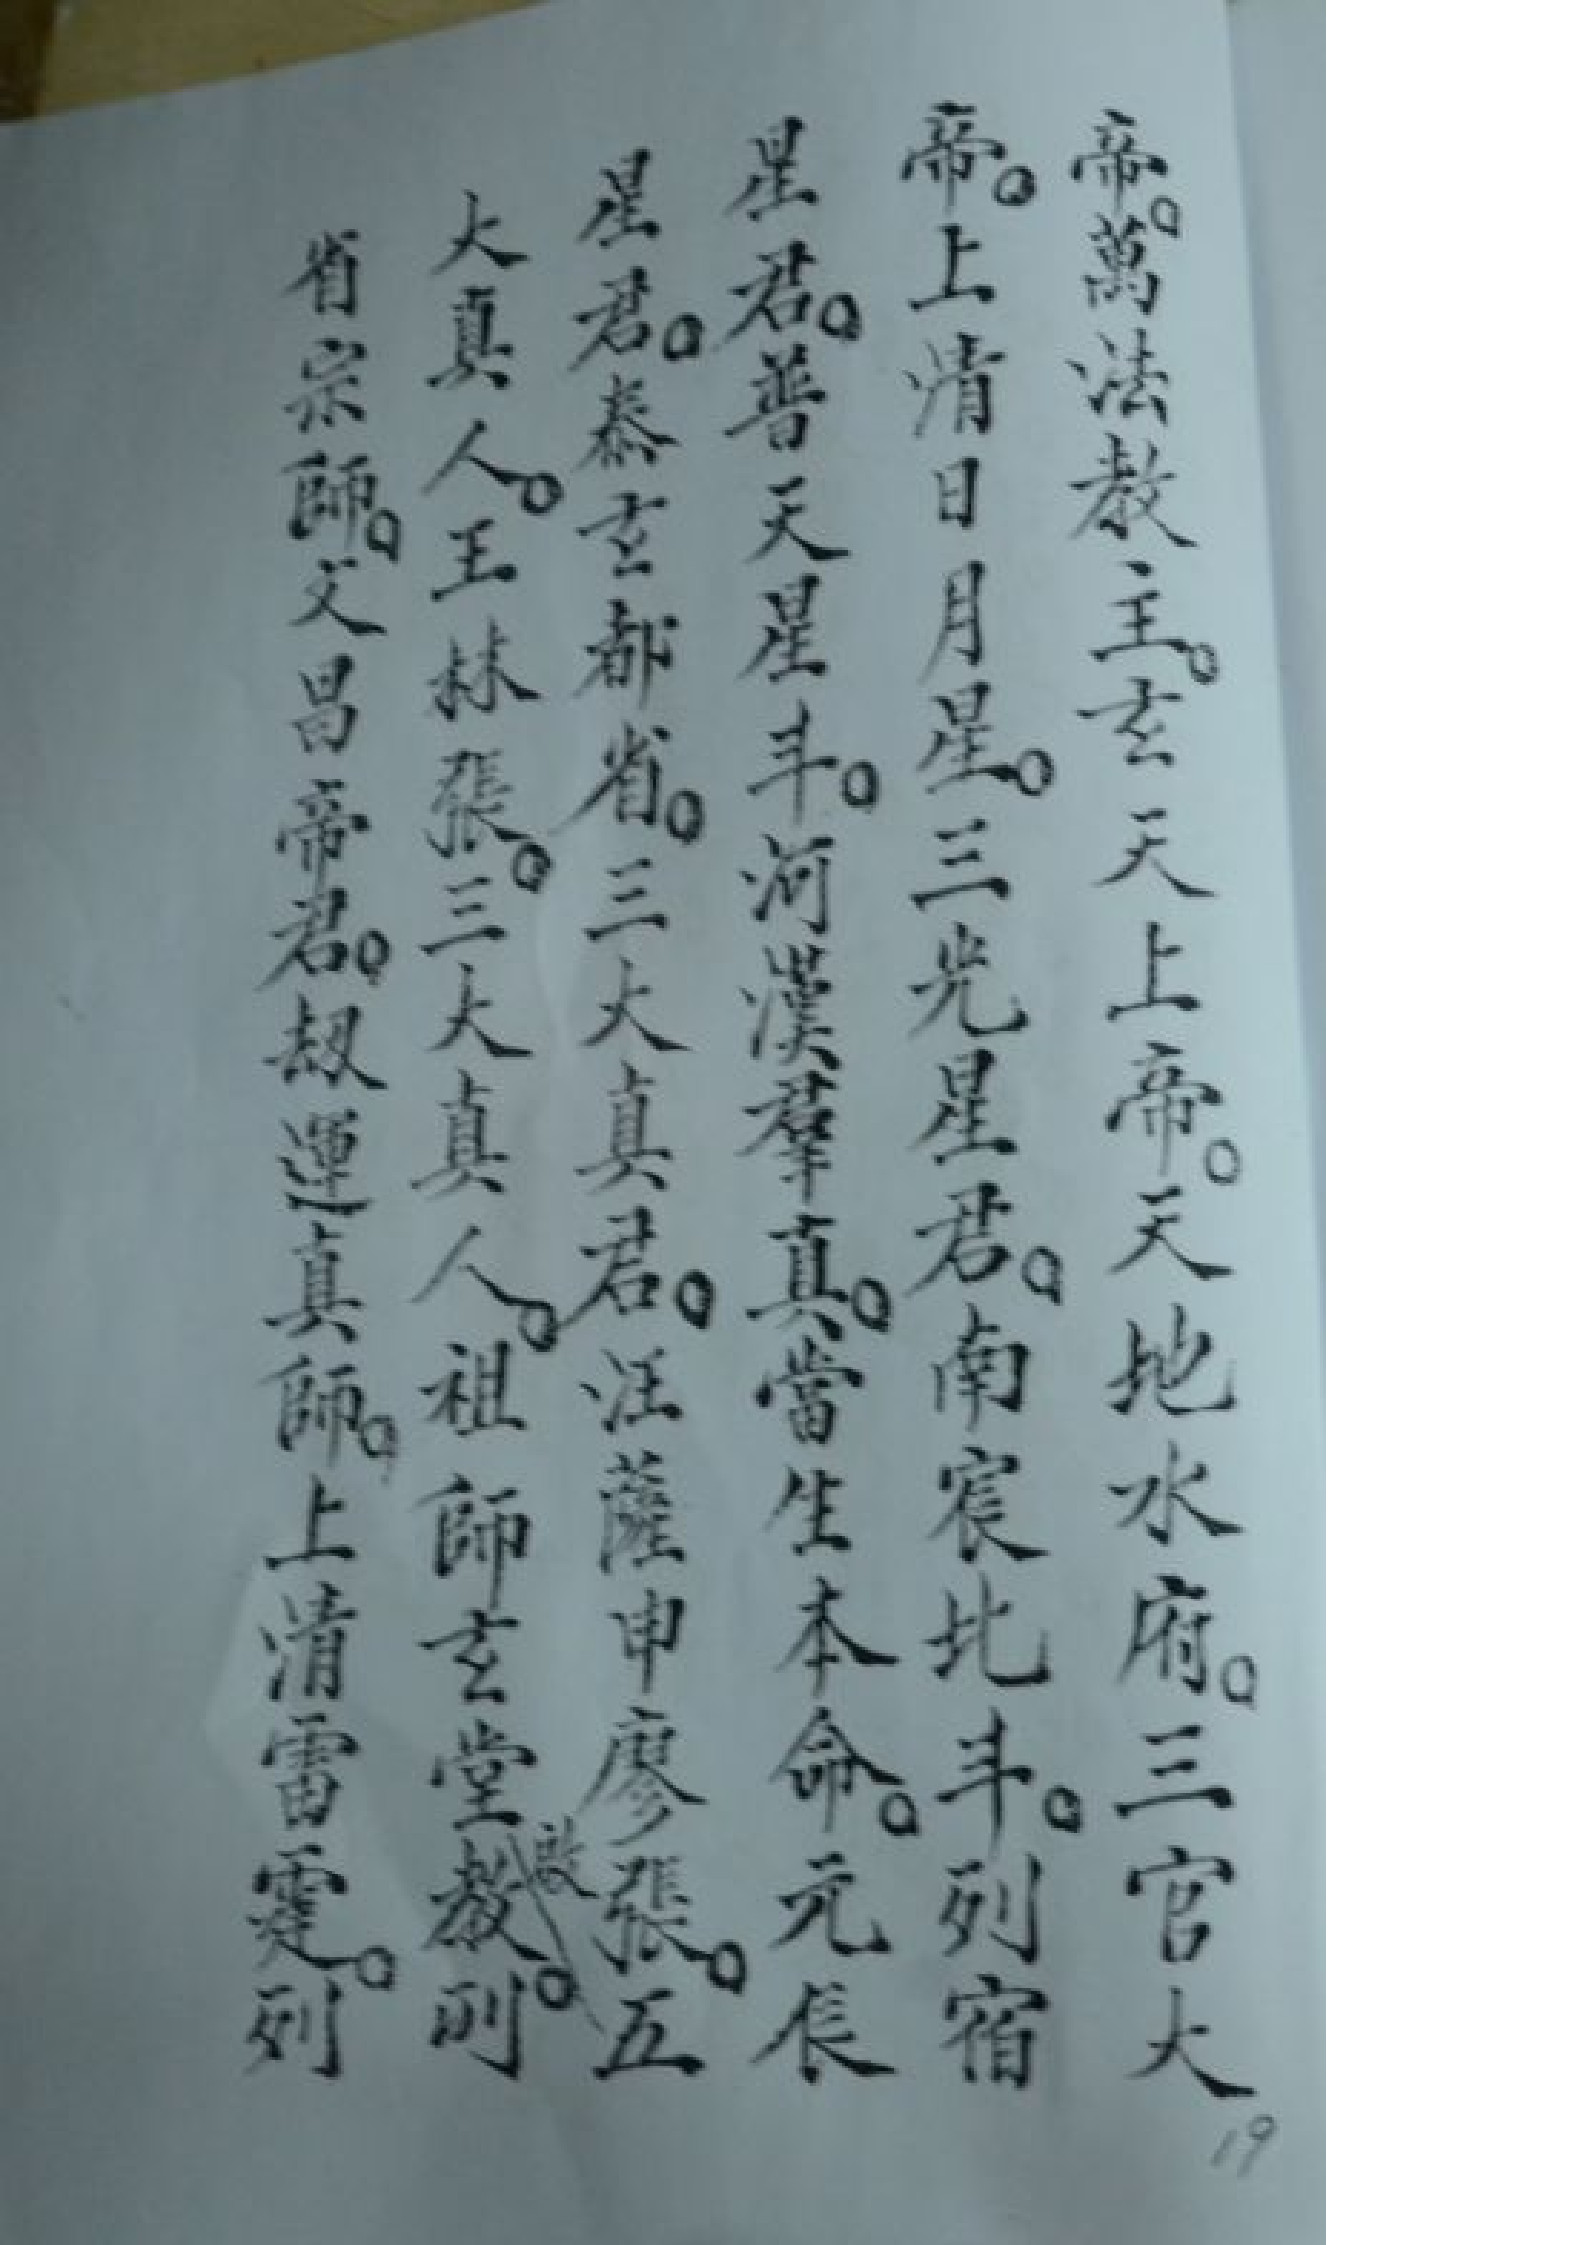 帝。萬法教主。玄天上帝。天地水府。三官大
帝。上清日月星。三光星君。南宸北斗。列宿
星君。普天星斗。河漢群真。當生本命。元辰
星君。泰玄都省。三大真君。汪薩申廖張。五
大真人。王林張。三大真人。祖師玄堂教。列
啟
省宗師。文昌帝君。劫運真師。上清雷霆。列
19